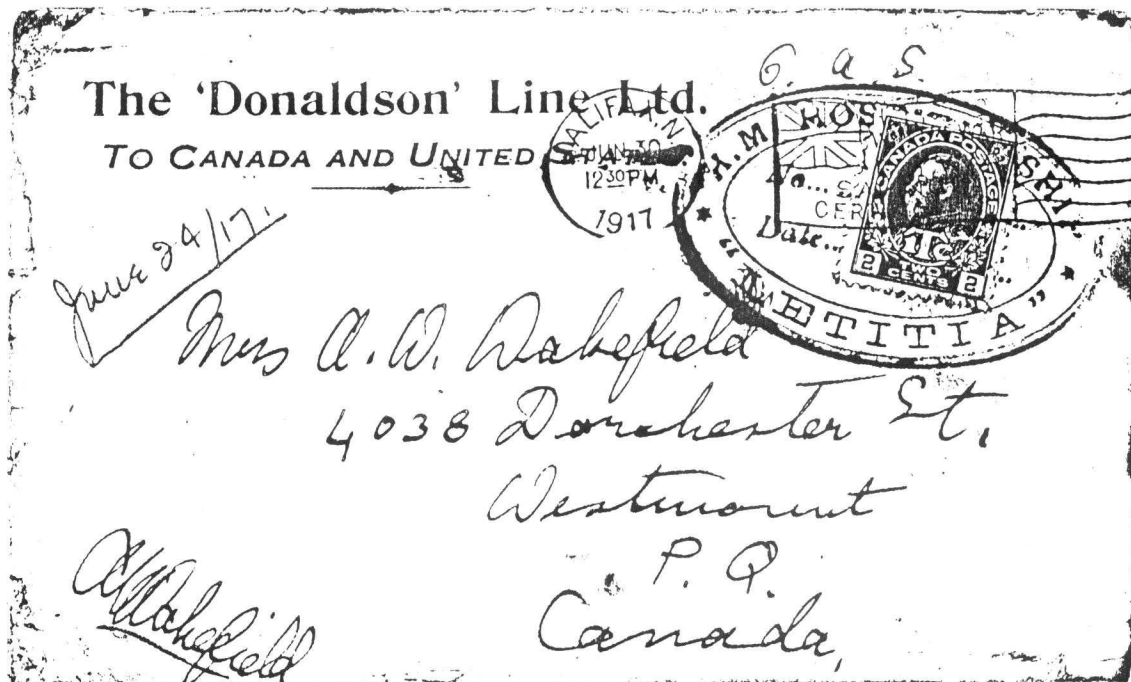 G. A. S.
The 'Donaldson' Line Ltd.
TO CANADA AND UNITED STATES.
HALIFAX N
JUN 30
12 30 PM
1917
H.M HOSPITAL SHIP
No...
CER
Date...
"LETITIA"
CANADA POSTAGE
TWO
CENTS
2 2
June 24/17.
Mrs A. W. Wakefield
4038 Dorchester St.
Westmount
P. Q.
Canada,
AWWakefield